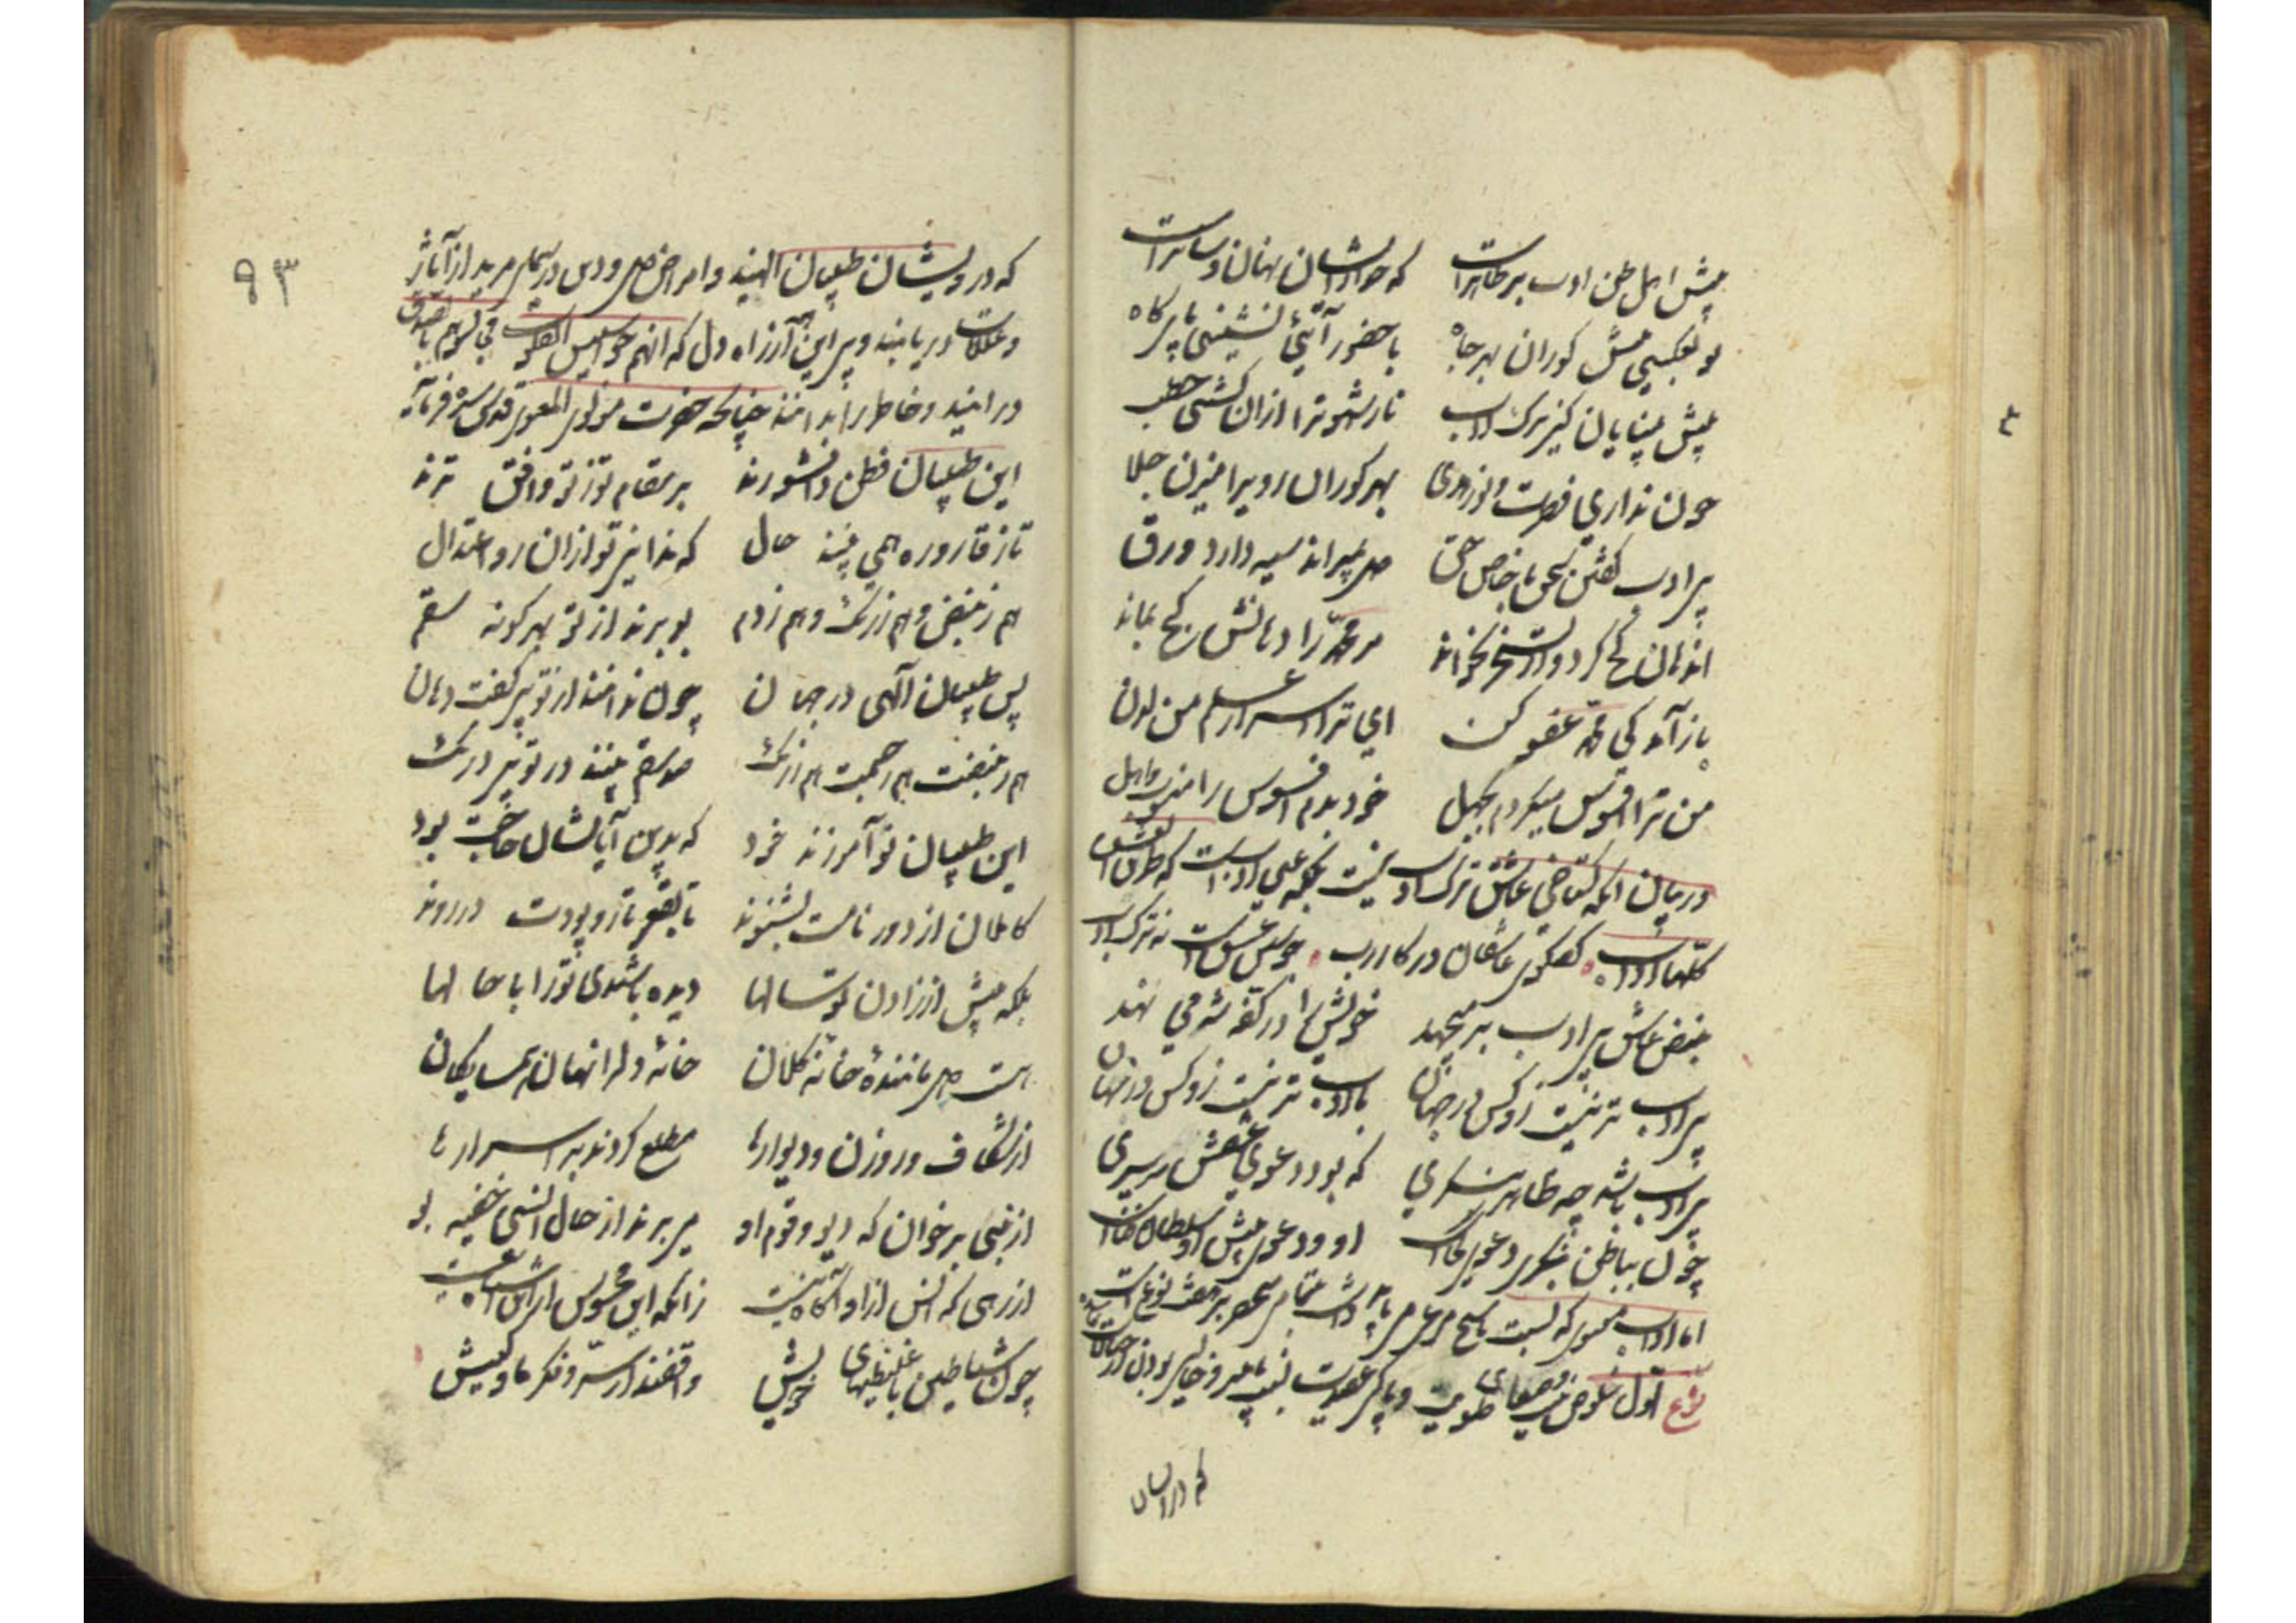 پیش اهل تن ادب بر ظاهرست که خدا زیشان نهان را ساترست
تو بعکسی پیش کوران بهر جاه با حضور آئی نشینی پایگاه
پیش بینایان کنی ترک ادب نار شهوترا ازان کشتی حطب
چون نداری فطنت و نور هدی بهر کوران رو یرا میزن جلا
بی ادب گفتن سخن با خاص حق دل بمیراند سیه دارد ورق
آن دهان کژ کرد و از تسخر بخواند مر محمد را دهانش کژ بماند
باز آمد کی محمد عفو کن ای ترا اسرار علم من لدن
من ترا افسوس میکردم بجهل خود بدم افسوس را منسوب و اهل
در بیان آنکه گستاخی عاشق ترک ادب نیست بلکه عین ادبست که طرق العشق
کلها آداب گفتگوی عاشقان در کار رب جوشش عشقست نه ترک ادب
نبض عاشق بی ادب بر میجهد خویش را در کفه شه می نهد
بی ادب تر نیست زو کس در جهان با ادب تر نیست زو کس در نهان
بی ادب باشد چه ظاهر بنگری که بود دعوی عشقش سرسری
چون بباطن بنگری دعوی کجاست او و دعوی پیش آن سلطان فناست
نوع اول خلوص
که درایشان
۹۳
که درویشان طبیبان الهیند و امراض دل و درسیمای مرید از آثار
و علامات دریابند و پیر این آرزاه دل که انهم جواسیس القلوب
درایند و خاطر را بدانند چنانکه حضرت مولوی المعنوی قدس سره فرماید
این طبیبان فطن دانشورند بر سقام تو ز تو واقف ترند
تا ز قاروره همی بینند حال که ندانی تو ازان رو اعتدال
هم ز نبض و هم ز رنگ و هم ز دم بو برند از تو بهر گونه سقم
پس طبیبان الهی در جهان چون ندانند از تو بی گفت دهان
هم ز نبضت هم ز چشمت هم ز رنگ صد سقم بینند در تو بی درنگ
این طبیبان نو آموزند خود که بدین آیاتشان حاجت بود
کاملان از دور نامت بشنوند تا بقعر تار و پودت در روند
بلکه پیش از زادن تو سالها دیده باشندی ترا با حالها
هست دل مانندهٔ خانه کلان خانهٔ دل را نهان همسایگان
از شکاف و روزن و دیوارها مطلع گردند بر اسرارها
از نبی بر خوان که دیو و قوم او می برند از حال انسی خفیه بو
از رهی که انس ازان آگاه نیست زانکه این محسوس ازین اشباه نیست
چون شیاطین با غلیظیهای خویش واقفند از سر و فکر ما و کیش